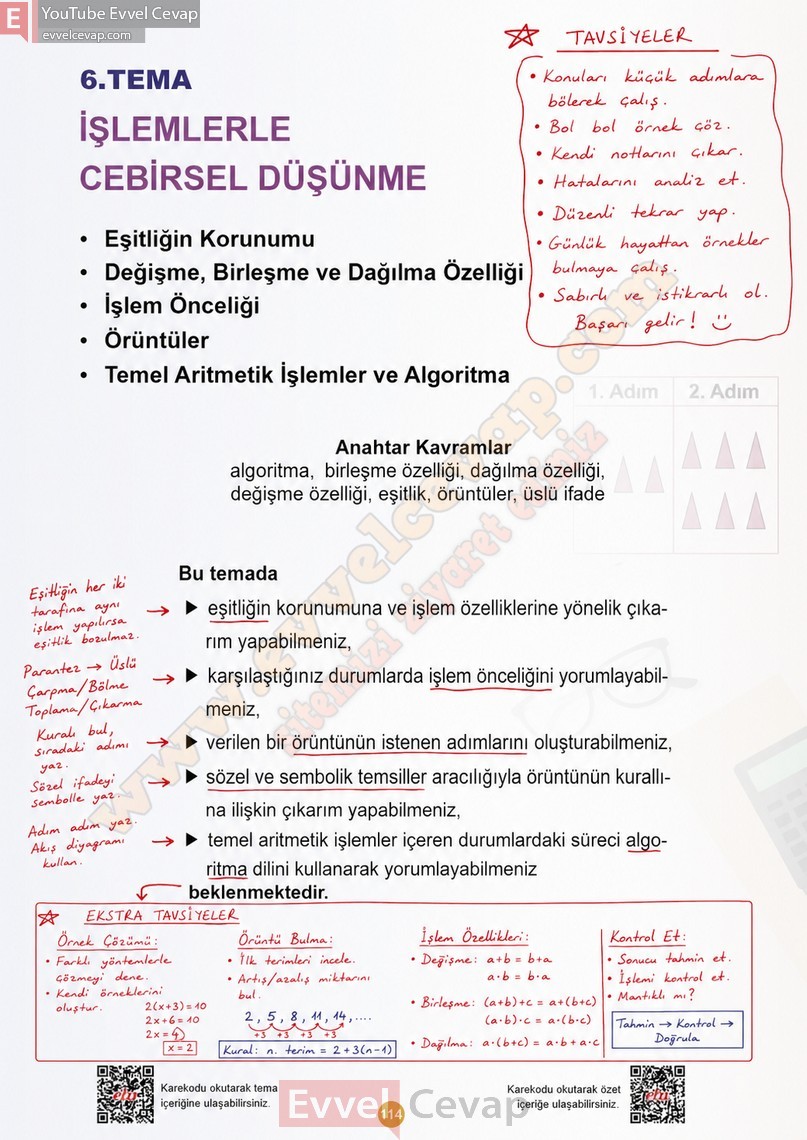 E YouTube Evvel Cevap
evvelcevap.com
TAVSİYELER
• Konuları küçük adımlara
bölerek çalış.
• Bol bol örnek çöz.
• Kendi notlarını çıkar.
• Hatalarını analiz et.
• Düzenli tekrar yap.
• Günlük hayattan örnekler
bulmaya çalış.
• Sabırlı ve istikrarlı ol.
Başarı gelir!
6.TEMA
İŞLEMLERLE
CEBİRSEL DÜŞÜNME
• Eşitliğin Korunumu
• Değişme, Birleşme ve Dağılma Özelliği
• İşlem Önceliği
• Örüntüler
• Temel Aritmetik İşlemler ve Algoritma
1. Adım 2. Adım
Anahtar Kavramlar
algoritma, birleşme özelliği, dağılma özelliği,
değişme özelliği, eşitlik, örüntüler, üslü ifade
www.evvelcevap.com
sitemizi ziyaret ediniz
Bu temada
Eşitliğin her iki
tarafına aynı
işlem yapılırsa
eşitlik bozulmaz. →
▶ eşitliğin korunumuna ve işlem özelliklerine yönelik çıka-
rım yapabilmeniz,
Parantez → Üslü
Çarpma/Bölme
Toplama/Çıkarma →
▶ karşılaştığınız durumlarda işlem önceliğini yorumlayabil-
meniz,
Kuralı bul,
sıradaki adımı
yaz. →
▶ verilen bir örüntünün istenen adımlarını oluşturabilmeniz,
Sözel ifadeyi
sembolle yaz. →
▶ sözel ve sembolik temsiller aracılığıyla örüntünün kuralı-
na ilişkin çıkarım yapabilmeniz,
Adım adım yaz.
Akış diyagramı
kullan. →
▶ temel aritmetik işlemler içeren durumlardaki süreci algo-
ritma dilini kullanarak yorumlayabilmeniz
beklenmektedir.
EKSTRA TAVSİYELER
Örnek Çözümü:
• Farklı yöntemlerle
çözmeyi dene.
• Kendi örneklerini
oluştur.
2(x+3)=10
2x+6=10
2x=4
x=2
Örüntü Bulma:
• İlk terimleri incele.
• Artış/azalış miktarını
bul.
2, 5, 8, 11, 14, ....
+3 +3 +3 +3
Kural: n. terim = 2+3(n-1)
İşlem Özellikleri:
• Değişme: a+b = b+a
a·b = b·a
• Birleşme: (a+b)+c = a+(b+c)
(a·b)·c = a·(b·c)
• Dağılma: a·(b+c) = a·b+a·c
Kontrol Et:
• Sonucu tahmin et.
• İşlemi kontrol et.
• Mantıklı mı?
Tahmin → Kontrol →
Doğrula
Karekodu okutarak tema
içeriğine ulaşabilirsiniz.
114
Evvel Cevap
Karekodu okutarak özet
içeriğe ulaşabilirsiniz.